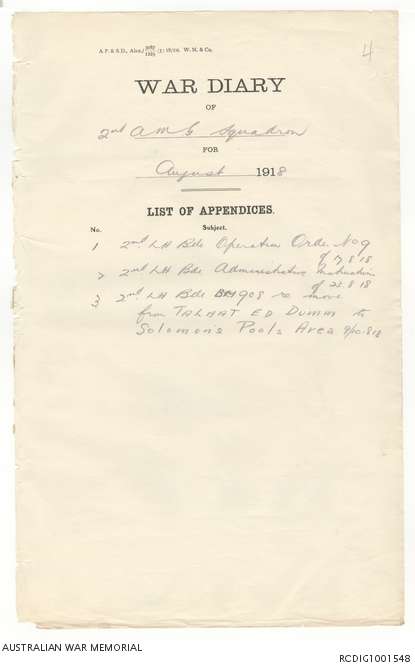 4
A.P. & S.D., Alex./3087/1525 (1) 18/16. W. H. & Co.
WAR DIARY
OF
2nd A M G Squadron
FOR
August 1918
LIST OF APPENDICES.
No. Subject.
1 2nd LH Bde Operation Order No 9
of 17.8.18
2 2nd LH Bde Administrative Instructions
of 22.8.18
3 2nd LH Bde BM908 re move
from TALHAT ED DUMM to
Solomon's Pools Area
AUSTRALIAN WAR MEMORIAL
RCDIG1001548